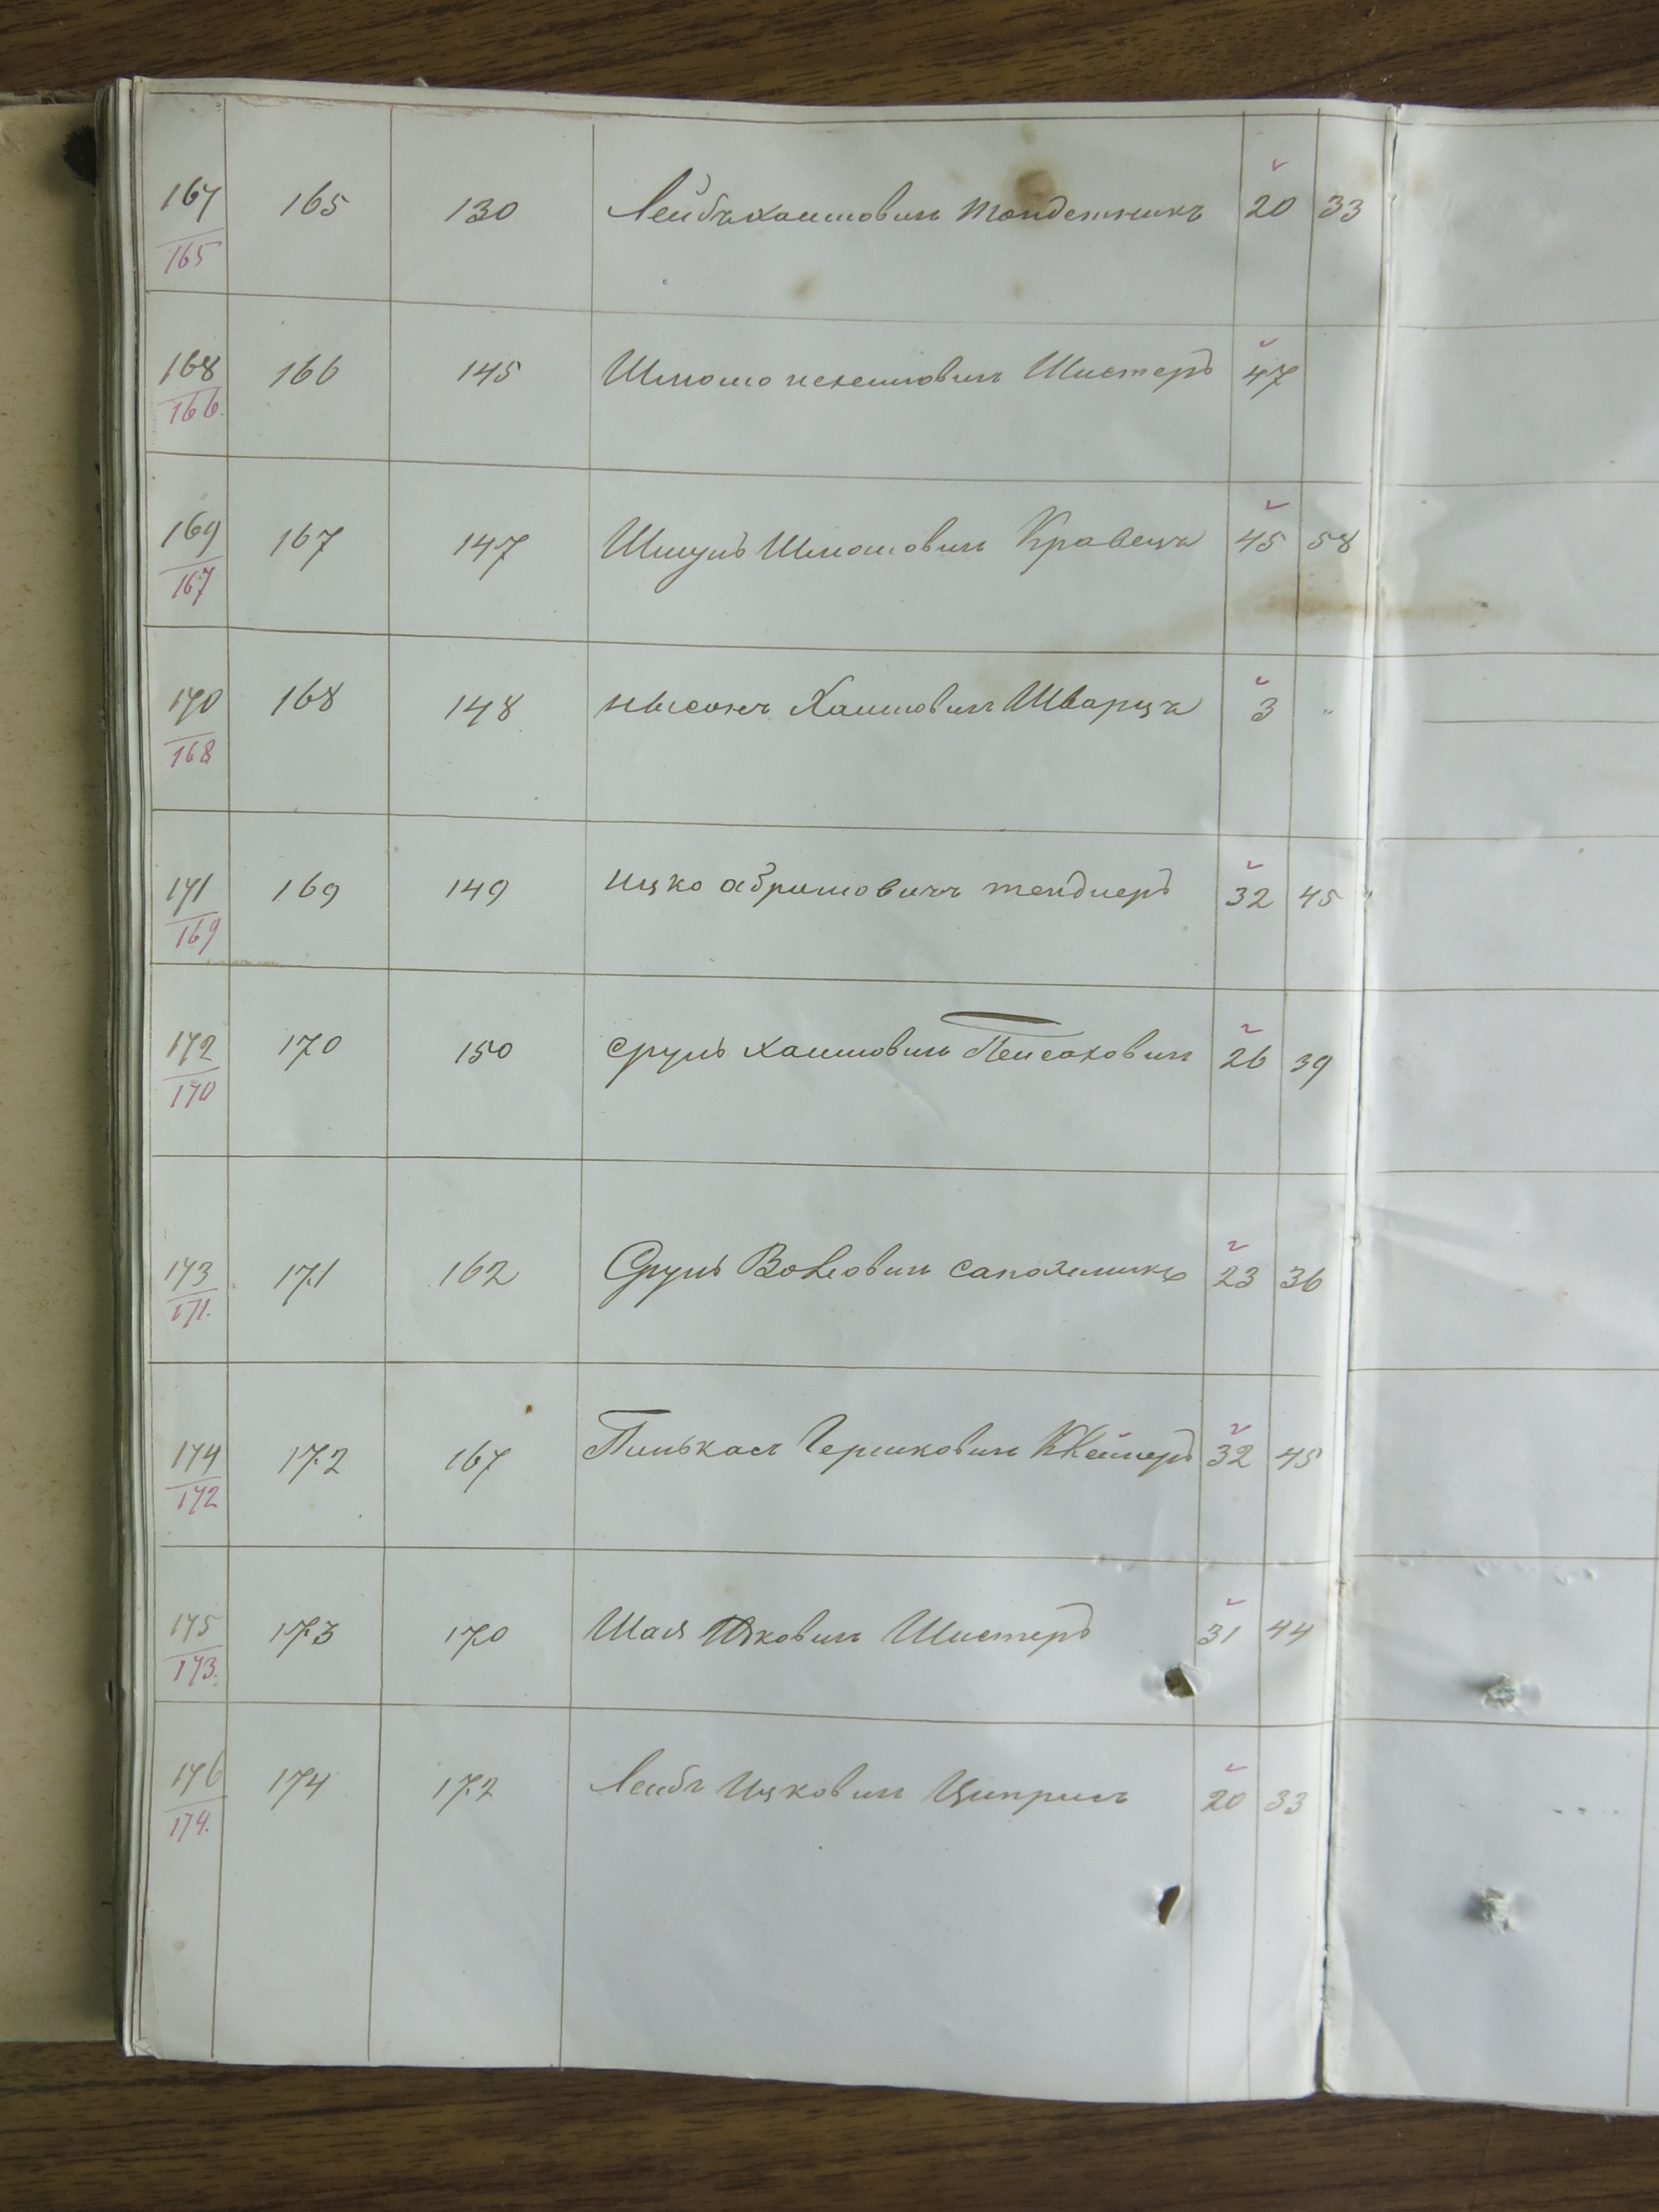 167 165 165 130 Лейбъ Хаимовичъ Тандетникъ 20 33
168 166 166 145 Шлиомо Шистеръ 47
169 167 167 147 Шмуль Шлиомовичъ Кравецъ 45 58
170 168 168 148 Нысонъ Хаимовичъ Шварцъ 3 "
171 169 169 149 Ицко Абрамовичъ Тендлеръ 32 45
172 170 170 150 Сруль Хаимовичъ Пейсаховичъ 26 39
173 171. 171 162 Сруль Волковичъ Сапожникъ 23 36
174 172 172 167 Пинькасъ Гершковичъ 32 45
175 173. 173 170 Шая Ицковичъ Шистеръ 31 44
176 174. 174 172 Лейбъ Ицковичъ Ципринъ 20 33